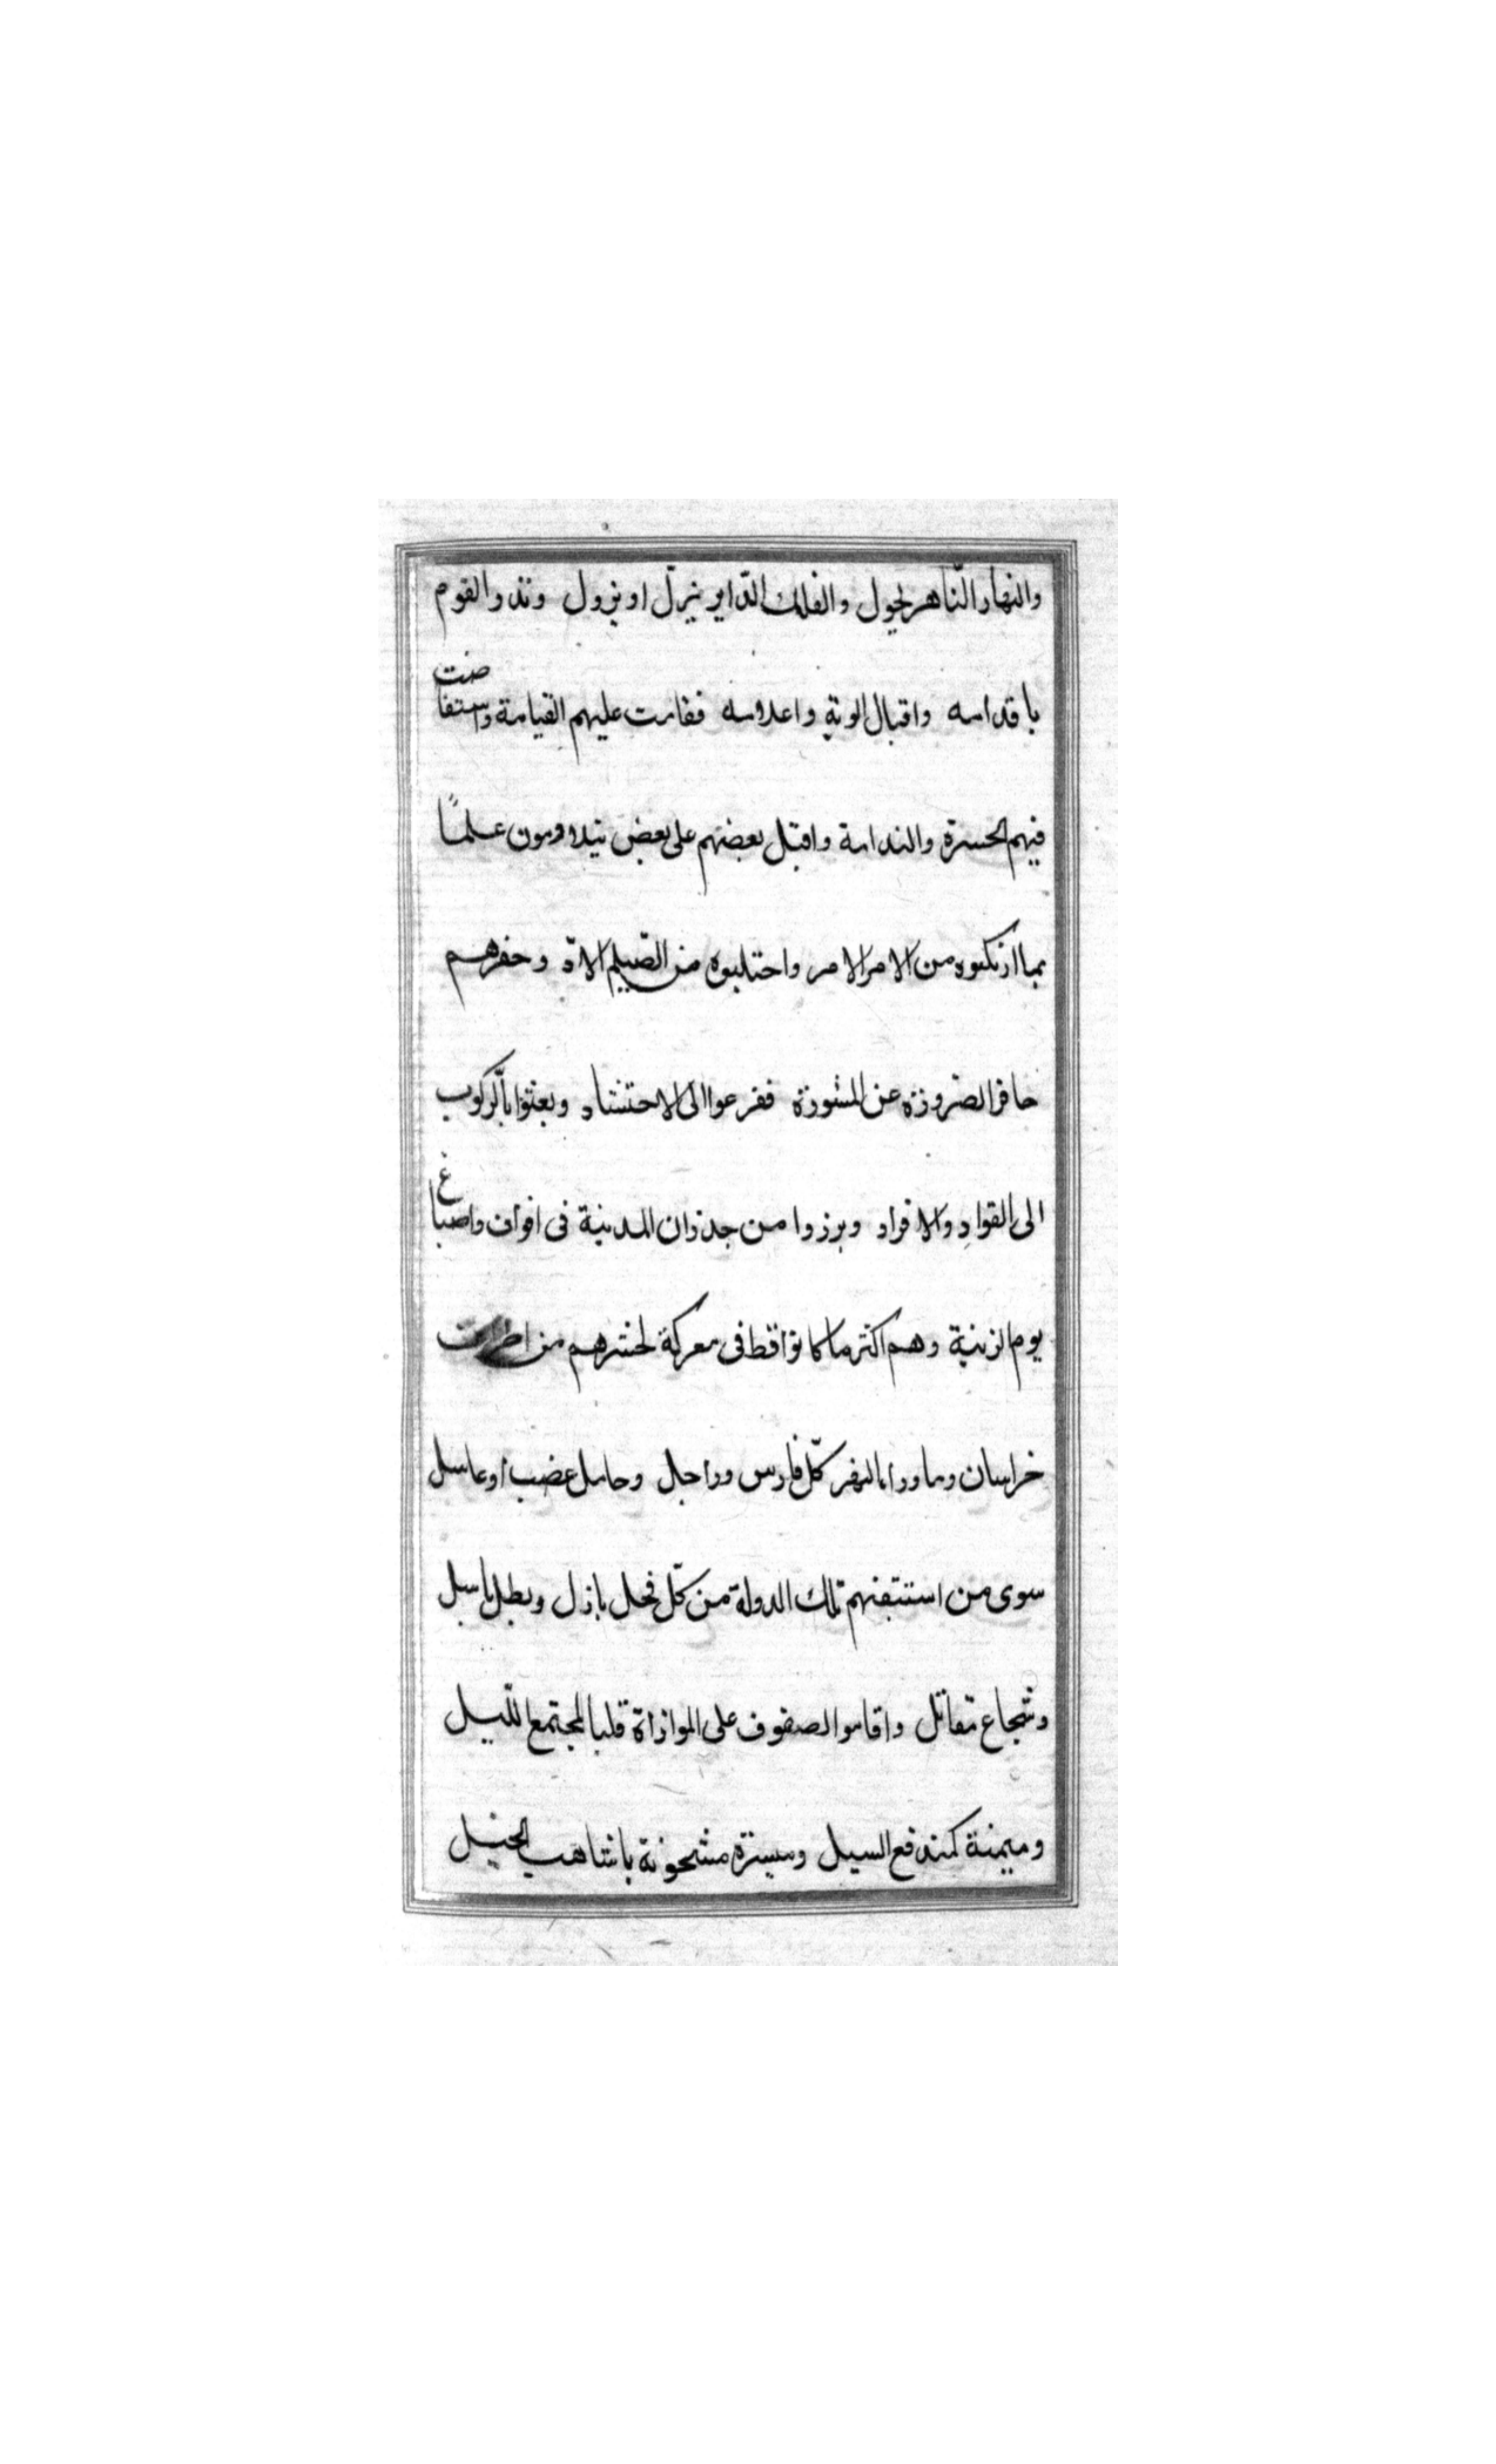 والنهار الناهر يحول والفلك الدّاير يزلّ او يزول ونذر القوم
باقدامه واقبال الويته واعلامه فقامت عليهم القيامة واستفاضت
فيهم الحسرة والندامة واقبل بعضهم على بعض يتلاومون علمًا
بما ارتكبوه من الامر الامر واحتلبوه من الصّيلم الادّ وحفزهم
حافز الضرورة عن المشورة ففزعوا الى الاحتشاد وبعثوا بالرّكوب
الى القوادِ والافراد وبرزوا من جدران المدينة فى افواف واصباغ
يوم الزينة وهم اكثر ما كانوا قط فى معركة لحشرهم من اطراف
خراسان وماوراء النهر كلّ فارس وراجل وحامل عضب او عاسل
سوى من استتبعهم تلك الدولة من كلّ فحل بازل وبطل باسل
وشجاع مقاتل واقاموا الصفوف على الموازاة قلبا كمجتمع اللّيل
وميمنة كمندفع السيل وميسرة مشحونة باشاهب الخيل